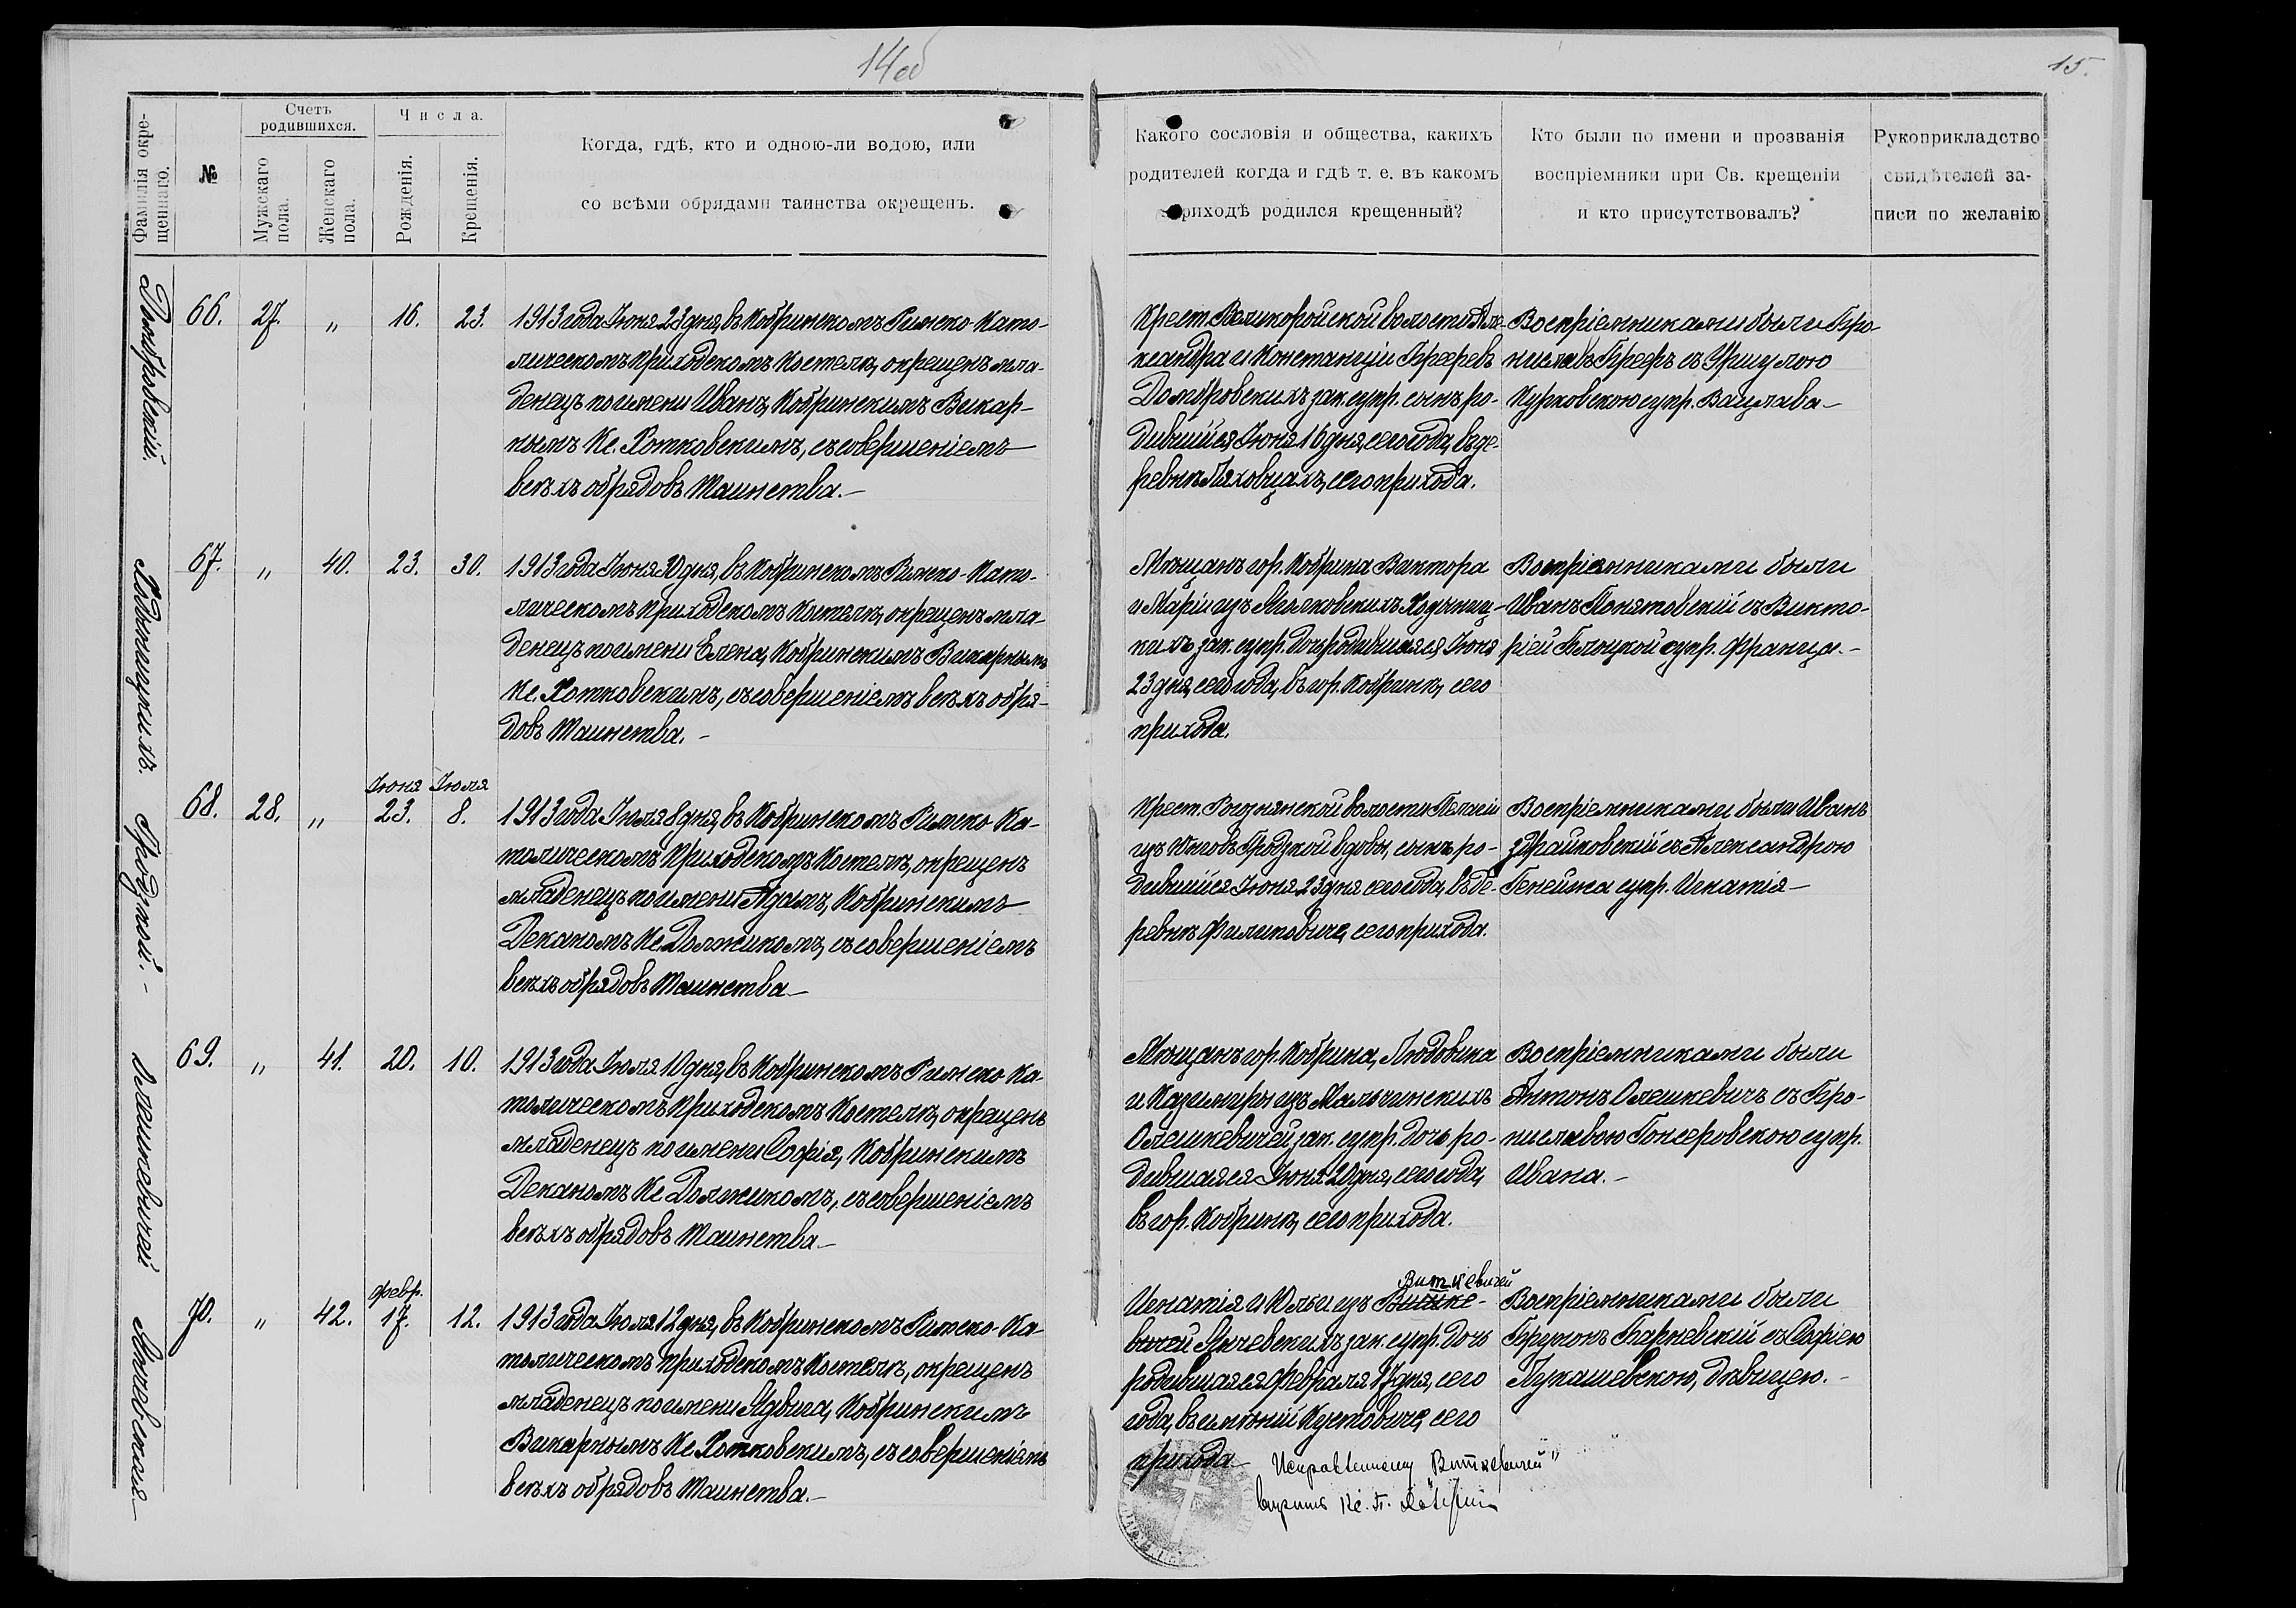 14об
15.
Фамилія окре-
щеннаго.
№
Счетъ
родившихся.
Мужскаго
пола.
Женскаго
пола.
Числа.
Рожденія.
Крещенія.
Когда, гдѣ, кто и одною-ли водою, или
со всѣми обрядами таинства окрещенъ.
Какого сословія и общества, какихъ
родителей когда и гдѣ т. е. въ какомъ
приходѣ родился крещенный?
Кто были по имени и прозванія
воспріемники при Св. крещеніи
и кто присутствовалъ?
Рукоприкладство
свидѣтелей за-
писи по желанію
Домбровскій.
66. 27. " 16. 23.
1913 года Іюня 23 дня, въ Кобринскомъ Римско-Като-
лическомъ Приходскомъ Костелѣ, окрещенъ мла-
денецъ по имени Иванъ, Кобринскимъ Викар-
нымъ Кс. Хотковскимъ, съ совершеніемъ
всѣхъ обрядовъ Таинства.-
Крест. Великорѝтской волости Але-
ксандра и Констанціи Грефовъ
Домбровскихъ зак. супр. сынъ ро-
дившійся Іюня 16 дня, сего года, въ де-
ревнѣ Ляховцахъ, сего прихода.
Воспріемниками были Бро-
ниславъ Грефъ съ Уршулою
Курковскою супр. Вацлава-
Ходыницкихъ.
67. " 40. 23. 30.
1913 года Іюня 30 дня, въ Кобринскомъ Римско-Като-
лическомъ Приходскомъ Костелѣ, окрещенъ мла-
денецъ по имени Елена, Кобринскимъ Викарнымъ
Кс. Хотковскимъ, съ совершеніемъ всѣхъ обря-
довъ Таинства.-
Мѣщанъ гор. Кобрина Виктора
и Маріи изъ Ходыниц-
кихъ зак. супр. дочь родившаяся Іюня
23 дня, сего года, въ гор. Кобринѣ, сего
прихода.
Воспріемниками были
Иванъ Понятовскій съ Викто-
ріей Блоцкой супр. Франца.-
Гродзкой.-
Іюня Іюля
68. 28. " 23. 8.
1913 года Іюля 8 дня, въ Кобринскомъ Римско-Ка-
толическомъ Приходскомъ Костелѣ, окрещенъ
младенецъ по имени Адамъ, Кобринскимъ
Деканомъ Кс. Должикомъ, съ совершеніемъ
всѣхъ обрядовъ Таинства-
Крест. волости Пелагіи
изъ Гродзкой вдовы, сынъ ро-
дившійся Іюня 23 дня сего года, въ де-
ревнѣ Филиповичѣ, сего прихода.
Воспріемниками были Иванъ
съ Александрою
супр. Игнатія-
Олешкевичей
69. " 41. 20. 10.
1913 года Іюля 10 дня, въ Кобринскомъ Римско-Ка-
толическомъ Приходскомъ Костелѣ, окрещенъ
младенецъ по имени Софія, Кобринскимъ
Деканомъ Кс Должикомъ, съ совершеніемъ
всѣхъ обрядовъ Таинства-
Мѣщанъ гор. Кобрина, Людовика
и Казимиры изъ Мальчинскихъ
Олешкевичей зак. супр. дочь ро-
дившаяся Іюня 20 дня, сего года,
въ гор. Кобринѣ, сего прихода.
Воспріемниками были
Антонъ Олешкевичъ съ Бро-
ниславою Гонсеровскою супр.
Ивана.-
Янчевскія-
февр.
70. " 42. 17. 12.
1913 года Іюля 12 дня, въ Кобринскомъ Римско-Ка-
толическомъ Приходскомъ Костелѣ, окрещенъ
младенецъ по имени Ядвига, Кобринскимъ
Викарнымъ Кс. Хотковскимъ, съ совершеніемъ
всѣхъ обрядовъ Таинства.-
Виткевичей
Игнатія и Юліи изъ
вичей Янчевскихъ зак. супр. дочь
родившаяся февраля 17 дня, сего
года, въ имѣніи Кустовичѣ, сего
прихода-
Воспріемниками были
Брунонъ Барневскій съ Софіею
Лукашевскою, дѣвицею.-
Исправленному Виткевичей"
вѣрить Кс.